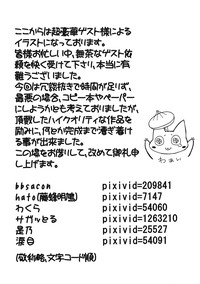 ここからは超豪華ゲスト様による
イラストになっております。
皆様お忙しい中、無茶なゲスト依
頼を快く受けて下さり、本当に有
難うございました。
今回は冗談抜きで時間が足りず、
最悪の場合、コピー本やペーパー
にしようかとも考えておりましたが、
頂戴したハイクオリティな作品を
励みに、何とか完成まで漕ぎ着け
る事が出来ました。
この場をお借りして、改めて御礼申
し上げます。
わぁん
bbsacon pixivid=209841
hato(藤蜂明鳩) pixivid=7147
わくら pixivid=54060
サガットる pixivid=1263210
是乃 pixivid=25527
涙目 pixivid=54091
(敬称略、文字コード順)